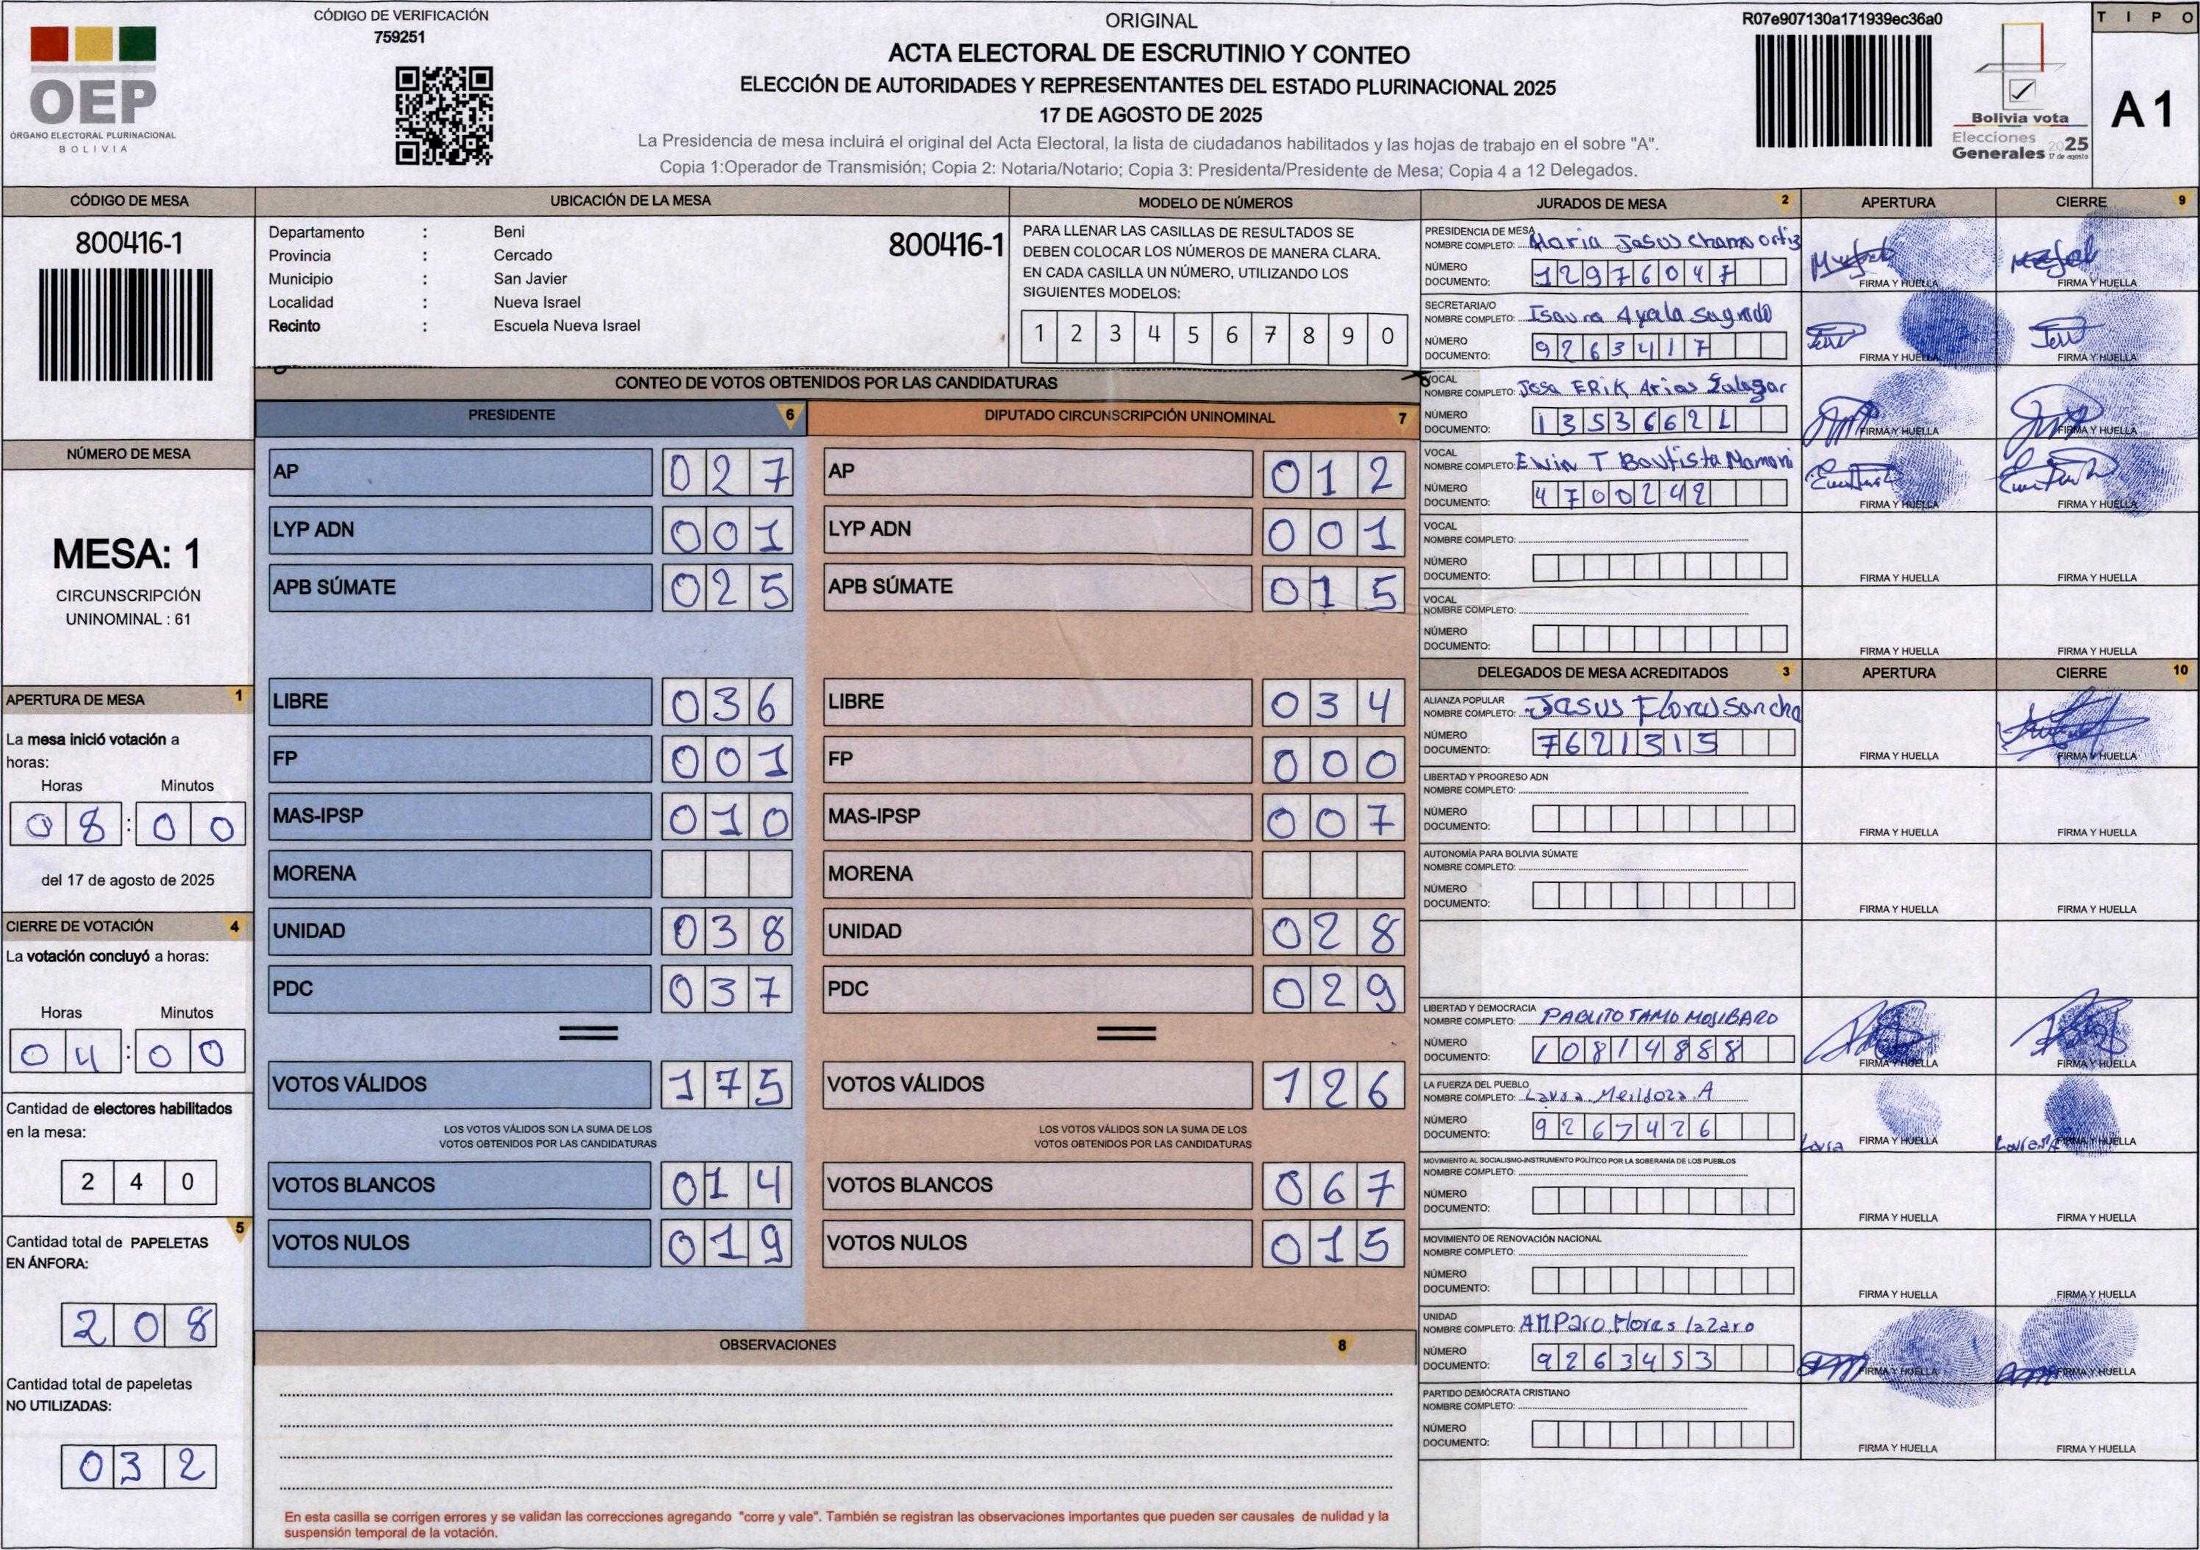 CÓDIGO DE VERIFICACIÓN
759251
OEP
ÓRGANO ELECTORAL PLURINACIONAL
BOLIVIA
ORIGINAL
ACTA ELECTORAL DE ESCRUTINIO Y CONTEO
ELECCIÓN DE AUTORIDADES Y REPRESENTANTES DEL ESTADO PLURINACIONAL 2025
17 DE AGOSTO DE 2025
La Presidencia de mesa incluirá el original del Acta Electoral, la lista de ciudadanos habilitados y las hojas de trabajo en el sobre "A".
Copia 1:Operador de Transmisión; Copia 2: Notaria/Notario; Copia 3: Presidenta/Presidente de Mesa; Copia 4 a 12 Delegados.
R07e907130a171939ec36a0
Bolivia vota
Elecciones
Generales 2025
17 de agosto
TIPO
A1
CÓDIGO DE MESA
800416-1
NÚMERO DE MESA
MESA: 1
CIRCUNSCRIPCIÓN
UNINOMINAL : 61
APERTURA DE MESA 1
La mesa inició votación a
horas:
Horas Minutos
08:00
del 17 de agosto de 2025
CIERRE DE VOTACIÓN 4
La votación concluyó a horas:
Horas Minutos
04:00
Cantidad de electores habilitados
en la mesa:
240
5
Cantidad total de PAPELETAS
EN ÁNFORA:
208
Cantidad total de papeletas
NO UTILIZADAS:
032
UBICACIÓN DE LA MESA
Departamento : Beni
800416-1
Provincia : Cercado
Municipio : San Javier
Localidad : Nueva Israel
Recinto : Escuela Nueva Israel
MODELO DE NÚMEROS
PARA LLENAR LAS CASILLAS DE RESULTADOS SE
DEBEN COLOCAR LOS NÚMEROS DE MANERA CLARA.
EN CADA CASILLA UN NÚMERO, UTILIZANDO LOS
SIGUIENTES MODELOS:
1 2 3 4 5 6 7 8 9 0
CONTEO DE VOTOS OBTENIDOS POR LAS CANDIDATURAS
PRESIDENTE 6 DIPUTADO CIRCUNSCRIPCIÓN UNINOMINAL 7
AP 027 AP 012
LYP ADN 001 LYP ADN 001
APB SÚMATE 025 APB SÚMATE 015
LIBRE 036 LIBRE 034
FP 001 FP 000
MAS-IPSP 010 MAS-IPSP 007
MORENA MORENA
UNIDAD 038 UNIDAD 028
PDC 037 PDC 029
VOTOS VÁLIDOS 175 VOTOS VÁLIDOS 126
LOS VOTOS VÁLIDOS SON LA SUMA DE LOS LOS VOTOS VÁLIDOS SON LA SUMA DE LOS
VOTOS OBTENIDOS POR LAS CANDIDATURAS VOTOS OBTENIDOS POR LAS CANDIDATURAS
VOTOS BLANCOS 014 VOTOS BLANCOS 067
VOTOS NULOS 019 VOTOS NULOS 015
OBSERVACIONES 8
En esta casilla se corrigen errores y se validan las correcciones agregando "corre y vale". También se registran las observaciones importantes que pueden ser causales de nulidad y la
suspensión temporal de la votación.
JURADOS DE MESA 2 APERTURA CIERRE 9
PRESIDENCIA DE MESA
NOMBRE COMPLETO: Maria Jasus Chamo ortiz
NÚMERO
DOCUMENTO: 12976047
FIRMA Y HUELLA FIRMA Y HUELLA
SECRETARIA/O
NOMBRE COMPLETO: Isaura Ayala Sagrado
NÚMERO
DOCUMENTO: 9263417
FIRMA Y HUELLA FIRMA Y HUELLA
VOCAL
NOMBRE COMPLETO: Josa ERiK Arias Salazar
NÚMERO
DOCUMENTO: 13536621
FIRMA Y HUELLA FIRMA Y HUELLA
VOCAL
NOMBRE COMPLETO: EWin T Bautista Mamani
NÚMERO
DOCUMENTO: 4700242
FIRMA Y HUELLA FIRMA Y HUELLA
VOCAL
NOMBRE COMPLETO:
NÚMERO
DOCUMENTO:
FIRMA Y HUELLA FIRMA Y HUELLA
VOCAL
NOMBRE COMPLETO:
NÚMERO
DOCUMENTO:
FIRMA Y HUELLA FIRMA Y HUELLA
DELEGADOS DE MESA ACREDITADOS 3 APERTURA CIERRE 10
ALIANZA POPULAR
NOMBRE COMPLETO: Jasus Flores Sancha
NÚMERO
DOCUMENTO: 7621315
FIRMA Y HUELLA FIRMA Y HUELLA
LIBERTAD Y PROGRESO ADN
NOMBRE COMPLETO:
NÚMERO
DOCUMENTO:
FIRMA Y HUELLA FIRMA Y HUELLA
AUTONOMÍA PARA BOLIVIA SÚMATE
NOMBRE COMPLETO:
NÚMERO
DOCUMENTO:
FIRMA Y HUELLA FIRMA Y HUELLA
LIBERTAD Y DEMOCRACIA
NOMBRE COMPLETO: PABLITO TAMO MOSIBARO
NÚMERO
DOCUMENTO: 10814888
FIRMA Y HUELLA FIRMA Y HUELLA
LA FUERZA DEL PUEBLO
NOMBRE COMPLETO: Laura Mendoza A
NÚMERO
DOCUMENTO: 9267426
Laura FIRMA Y HUELLA FIRMA Y HUELLA
MOVIMIENTO AL SOCIALISMO-INSTRUMENTO POLÍTICO POR LA SOBERANÍA DE LOS PUEBLOS
NOMBRE COMPLETO:
NÚMERO
DOCUMENTO:
FIRMA Y HUELLA FIRMA Y HUELLA
MOVIMIENTO DE RENOVACIÓN NACIONAL
NOMBRE COMPLETO:
NÚMERO
DOCUMENTO:
FIRMA Y HUELLA FIRMA Y HUELLA
UNIDAD
NOMBRE COMPLETO: AMParo Flores lazaro
NÚMERO
DOCUMENTO: 9263453
FIRMA Y HUELLA FIRMA Y HUELLA
PARTIDO DEMÓCRATA CRISTIANO
NOMBRE COMPLETO:
NÚMERO
DOCUMENTO:
FIRMA Y HUELLA FIRMA Y HUELLA